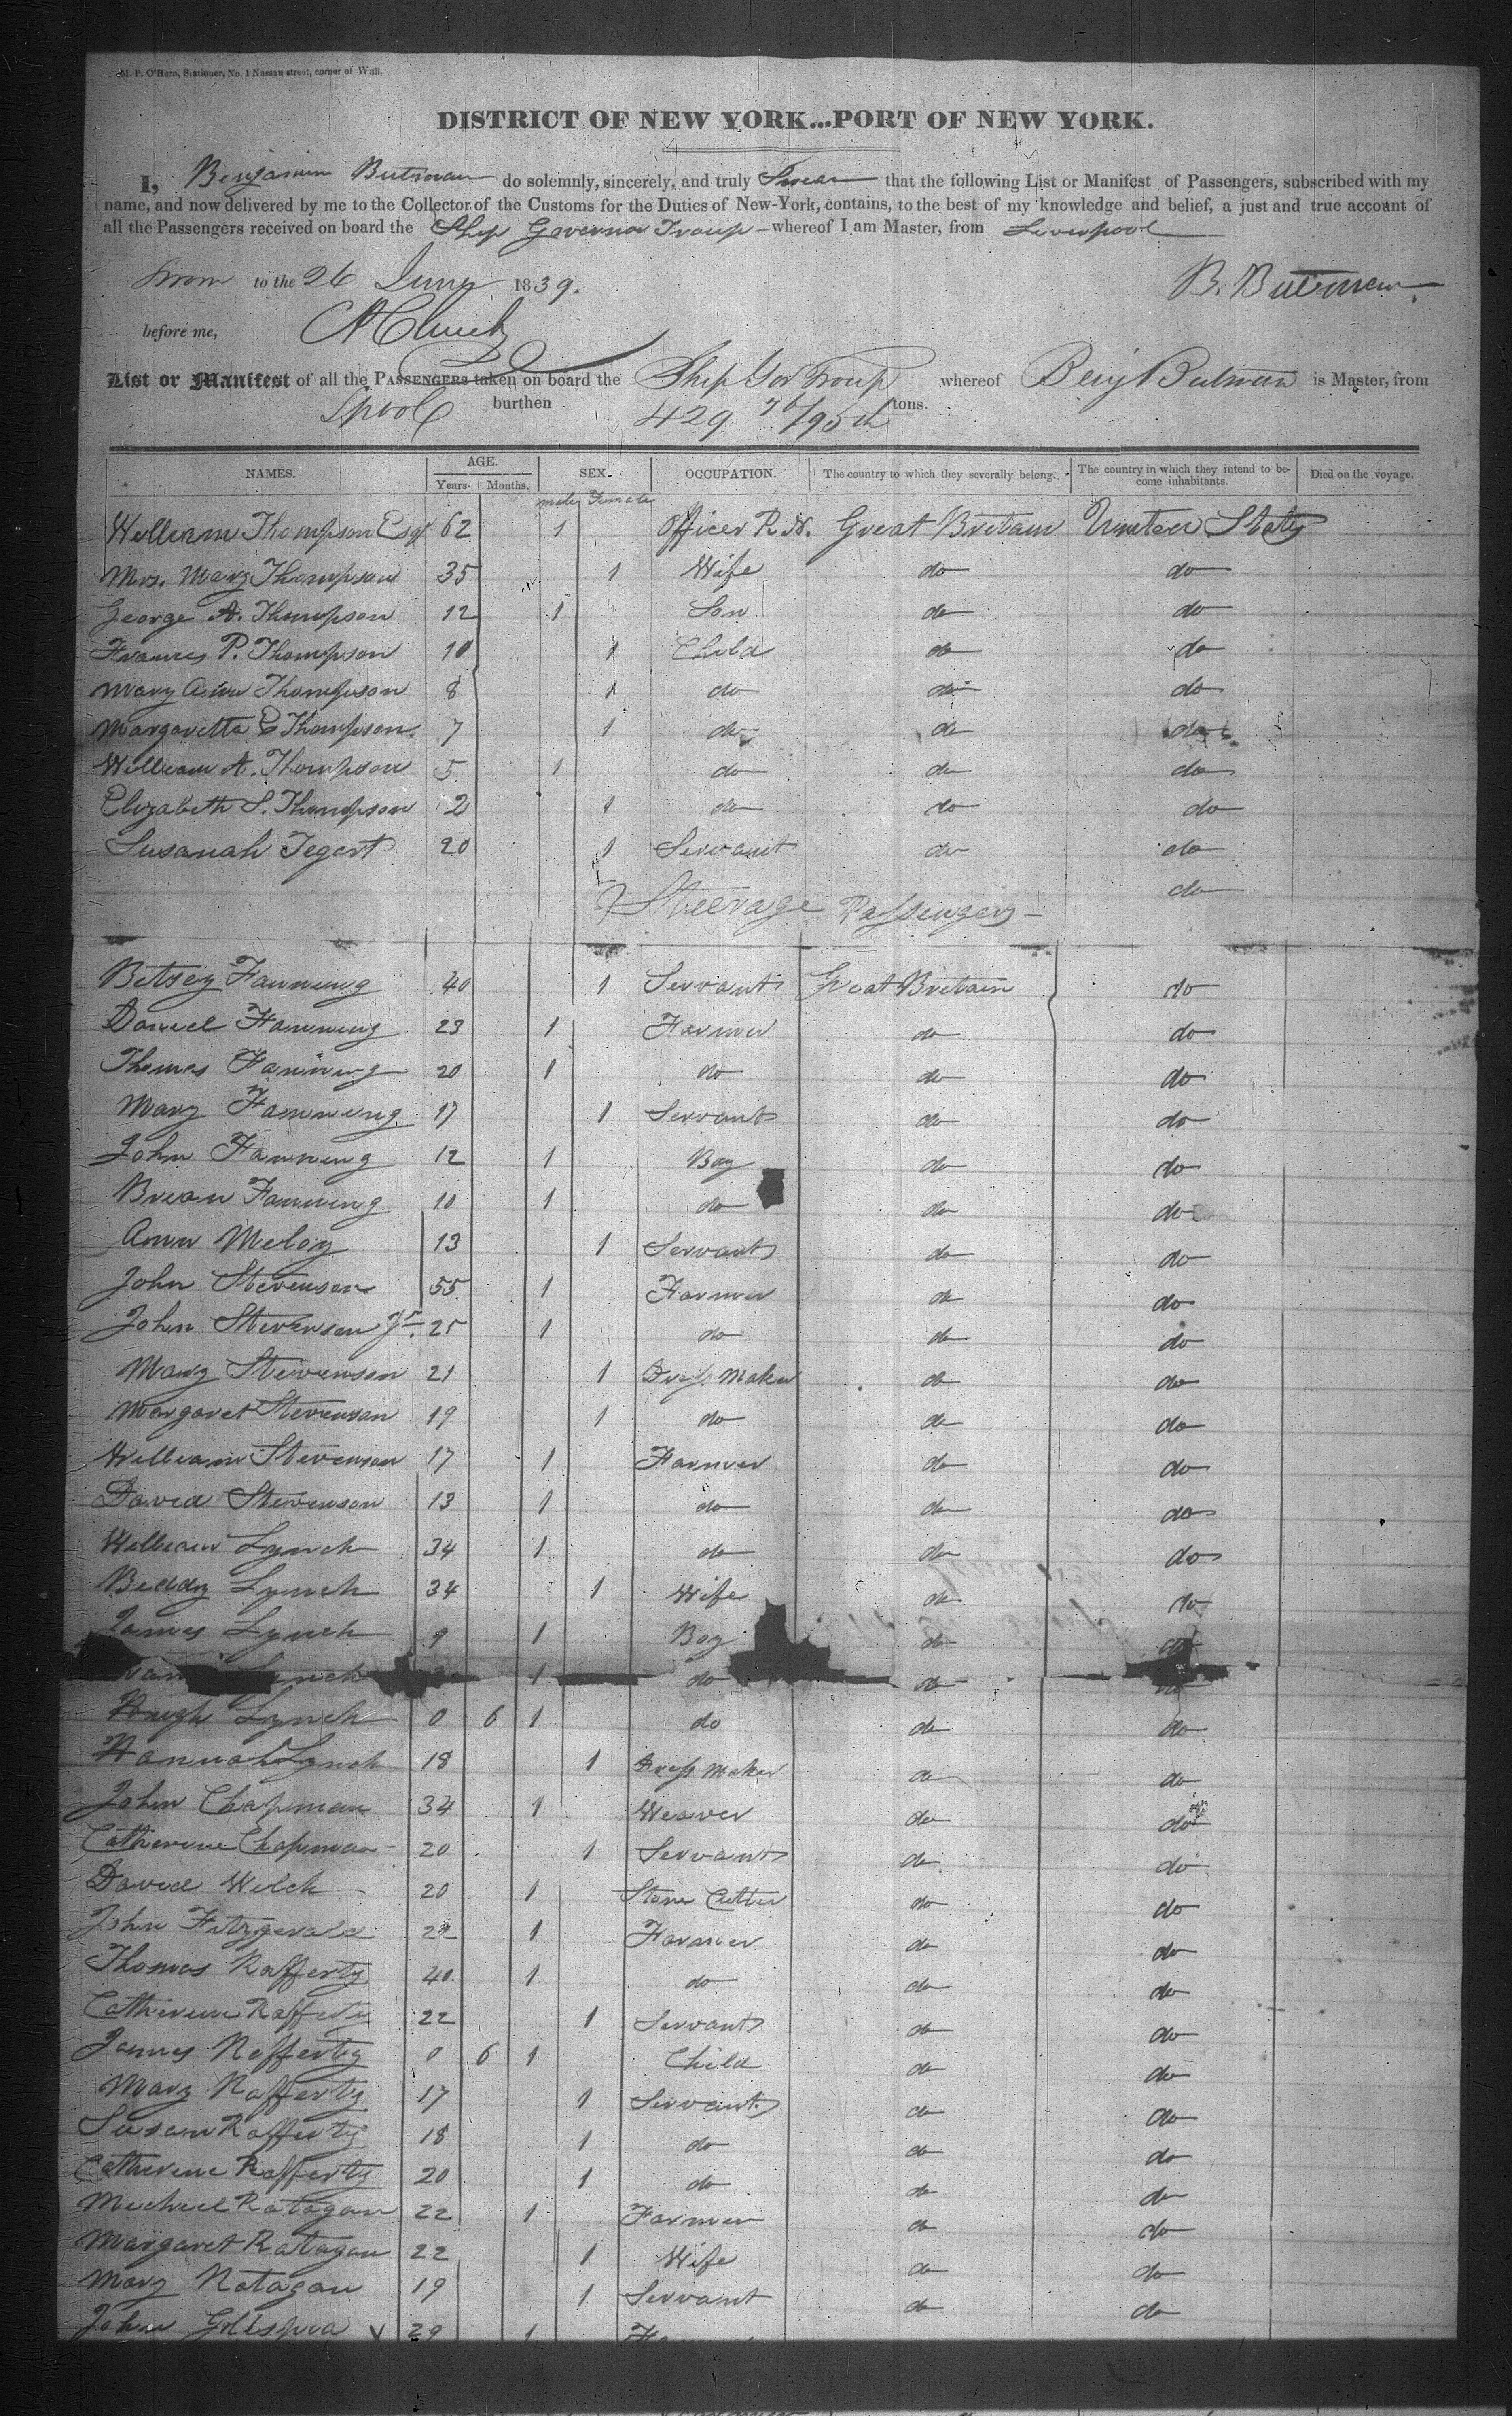 M. P. O'Hern, Stationer, No. 1 Nassau street, corner of Wall.
DISTRICT OF NEW YORK...PORT OF NEW YORK.
I, Benjamin Butman do solemnly, sincerely, and truly Swear that the following List or Manifest of Passengers, subscribed with my
name, and now delivered by me to the Collector of the Customs for the Duties of New-York, contains, to the best of my knowledge and belief, a just and true account of
all the Passengers received on board the Ship Governor Troup whereof I am Master, from Liverpool
Sworn to the 26 June 1839. B. Butman
before me,
List or Manifest of all the PASSENGERS taken on board the Ship Gov Troup whereof Benj Butman is Master, from
Lpool burthen 429 76/95th tons.
NAMES. AGE. SEX. OCCUPATION. The country to which they severally belong. The country in which they intend to become inhabitants. Died on the voyage.
Years. Months. male Female
William Thompson Esqr 62 1 Officer R.N. Great Britain United States
Mrs. Mary Thompson 35 1 Wife do do
George A. Thompson 12 1 Son do do
Frances P. Thompson 10 1 Child do do
Mary Ann Thompson 8 1 do do do
Margaretta E Thompson 7 1 do do do
William A. Thompson 5 1 do do do
Elizabeth S. Thompson 2 1 do do do
Susanah Tegart 20 1 Servant do do
Steerage Passengers do
Betsey Fanning 40 1 Servant Great Britain do
Daniel Fanning 23 1 Farmer do do
Thomas Fanning 20 1 do do do
Mary Fanning 17 1 Servant do do
John Fanning 12 1 Boy do do
Brean Fanning 10 1 do do do
Ann Meloy 13 1 Servant do do
John Stevenson 55 1 Farmer do do
John Stevenson Jr. 25 1 do do do
Mary Stevenson 21 1 Dress Maker do do
Margaret Stevenson 19 1 do do do
William Stevenson 17 1 Farmer do do
David Stevenson 13 1 do do do
William Lynch 34 1 do do do
Biddy Lynch 34 1 Wife do do
James Lynch 9 1 Boy do do
Lynch 1 do do do
Hugh Lynch 0 6 1 do do do
Hannah Lynch 18 1 Dress Maker do do
John Chapman 34 1 Weaver do do
Catherine Chapman 20 1 Servant do do
David Welch 20 1 Stone Cutter do do
John Fitzgerald 22 1 Farmer do do
Thomas Rafferty 40 1 do do do
Catherine Rafferty 22 1 Servant do do
James Rafferty 0 6 1 Child do do
Mary Rafferty 17 1 Servant do do
Susan Rafferty 18 1 do do do
Catherine Rafferty 20 1 do do do
Michael Ratagan 22 1 Farmer do do
Margaret Ratagan 22 1 Wife do do
Mary Ratagan 19 1 Servant do do
John 29 1